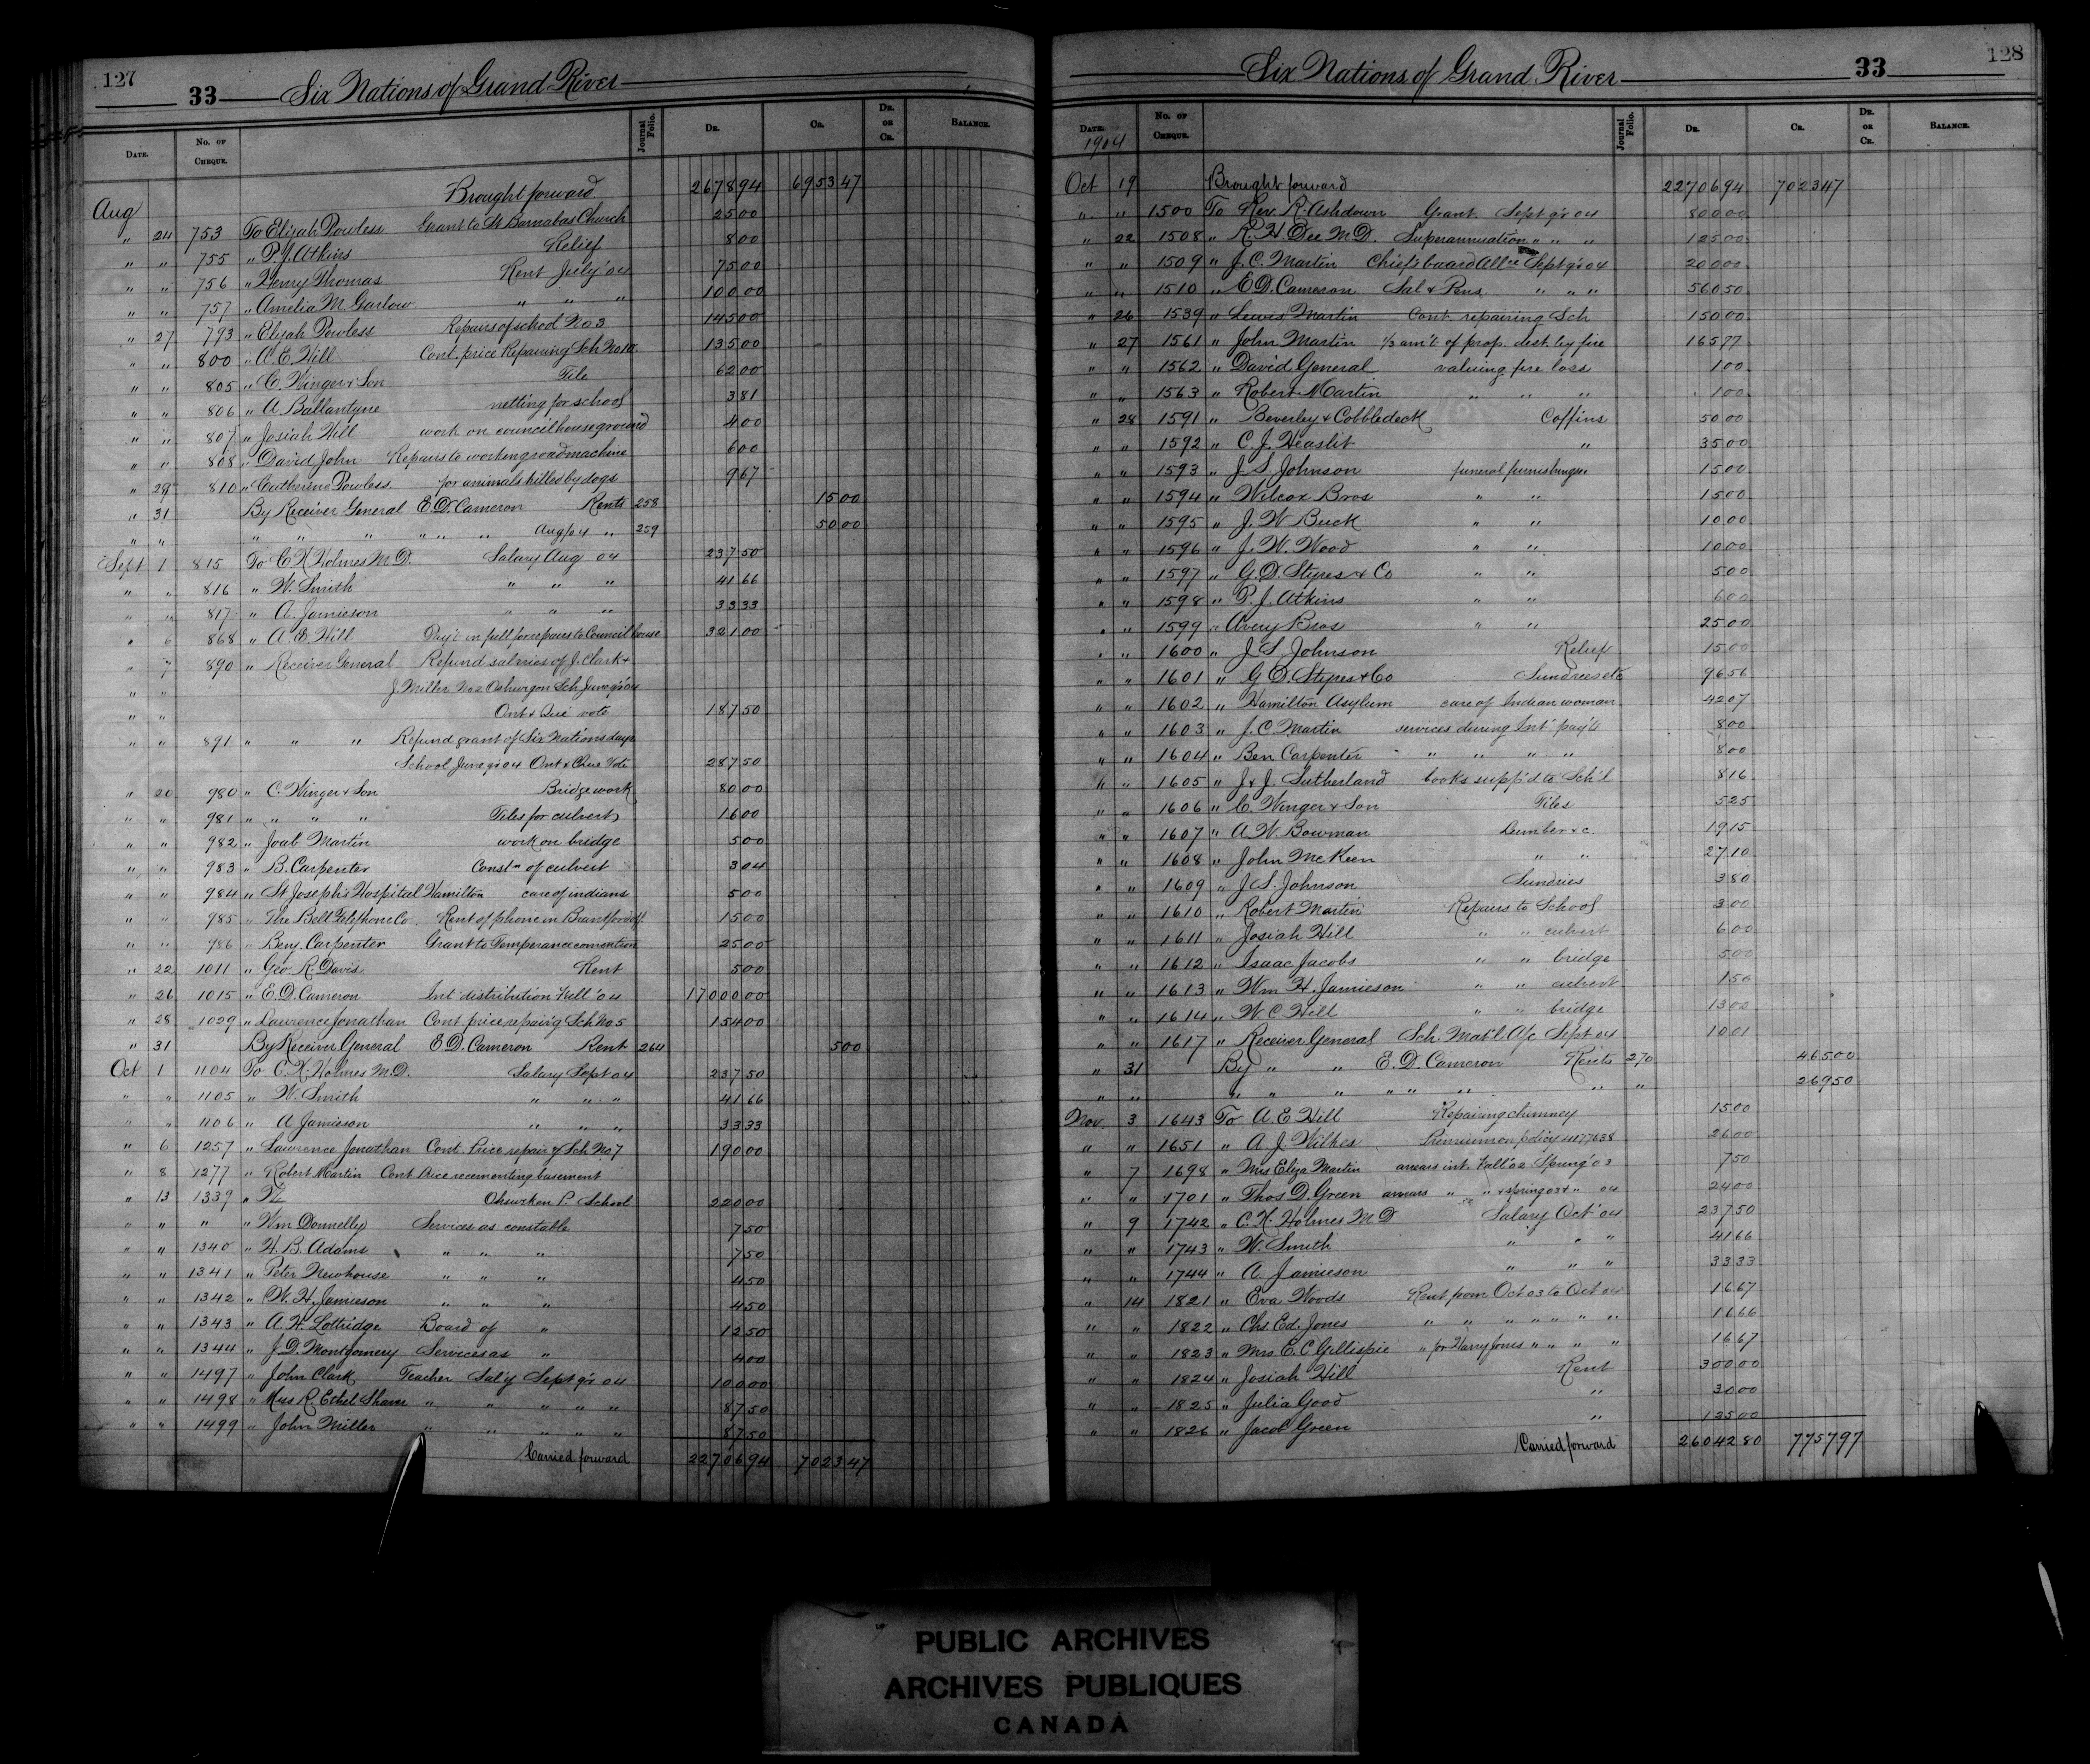 127
33 Six Nations of Grand River
Date. No. of Cheque. Journal Folio. Dr. Cr. Dr. or Cr. Balance.
Brought forward 2678 94 6953 47
Aug
" 24 753 To Elijah Powless Grant to St Barnabas Church 25 00
" " 755 " P.J. Atkins Relief 8 00
" " 756 " Henry Thomas Rent July '04 75 00
" " 757 " Amelia M. Garlow " " " 100 00
" 27 793 " Elijah Powless Repairs of school No 3 145 00
" " 800 " A.E. Hill Cont. price Repairing Sch No 10 135 00
" " 805 " C. Winger & Son Tile 62 00
" " 806 " A Ballantyne netting for school 3 81
" " 807 " Josiah Hill work on councilhouse ground 4 00
" " 808 " David John Repairs to working road machine 6 00
" 29 810 " Catherine Powless for animals killed by dogs 9 67
" 31 By Receiver General E.D. Cameron Rents 258 15 00
" " " " " " " " Aug/04 " 259 50 00
Sept 1 815 To C K Holmes M.D. Salary Aug 04 237 50
" " 816 " W. Smith " " " 41 66
" " 817 " A. Jamieson " " " 33 33
" 6 868 " A.E. Hill Pay't in full for repairs to Council house 321 00
" 7 890 " Receiver General Refund salaries of J. Clark &
" " J. Miller No 2 Oshwegon Sch June qr 04
" " Ont & Que vote 187 50
" " 891 " " " Refund grant of Six Nations days
School June qr 04 Ont & Que Vote 287 50
" 20 980 " C. Winger & Son Bridge work 80 00
" " 981 " " " " Tiles for culvert 16 00
" " 982 " Joab Martin work on bridge 5 00
" " 983 " B. Carpenter Constn of culvert 3 04
" " 984 " St Joseph's Hospital Hamilton care of indians 5 00
" " 985 " The Bell Telephone Co. Rent of phone in Brantford off. 15 00
" " 986 " Benj. Carpenter Grant to Temperance convention 25 00
" 22 1011 " Geo. R. Davis Rent 5 00
" 26 1015 " E.D. Cameron Int distribution Fall '04 17000 00
" 28 1029 " Laurence Jonathan Cont. price repair'g Sch No 5 154 00
" 31 By Receiver General E.D. Cameron Rent 264 5 00
Oct 1 1104 To C.K. Holmes M.D. Salary Sept 04 237 50
" " 1105 " W. Smith " " " 41 66
" " 1106 " A Jamieson " " " 33 33
" 6 1257 " Lawrence Jonathan Cont. Price repair'g Sch No 7 190 00
" 8 1277 " Robert Martin Cont Price recementing basement
" 13 1339 " Ohswken P. School 220 00
" " " " Wm Donnelly Services as constable 7 50
" " 1340 " H.B. Adams " " " 7 50
" " 1341 " Peter Newhouse " " " 4 50
" " 1342 " W.H. Jamieson " " " 4 50
" " 1343 " A.H. Lottridge Board of " 12 50
" " 1344 " J.D. Montgomery Services as " 4 00
" " 1497 " John Clark Teacher Sal'y Sept qr 04 100 00
" " 1498 " Miss R. Ethel Sham " " " " " 87 50
" " 1499 " John Miller " " " " " 87 50
Carried forward 22706 94 7023 47
128
Six Nations of Grand River 33
Date. No. of Cheque. Journal Folio. Dr. Cr. Dr. or Cr. Balance.
1904
Oct 19 Brought forward 22706 94 7023 47
" " 1500 To Rev. R. Ashdown Grant. Sept qr 04 800 00
" 22 1508 " R.H. Dee M.D. Superannuation " " " 125 00
" " 1509 " J.C. Martin Chief's board Allce Sept qr 04 200 00
" " 1510 " E.D. Cameron Sal & Rens. " " " 560 50
" 26 1539 " Lewis Martin Cont. repairing Sch 150 00
" 27 1561 " John Martin 1/3 am't of prop. dest. by fire 165 77
" " 1562 " David General valuing fire loss 1 00
" " 1563 " Robert Martin " " " 1 00
" 28 1591 " Beverley & Cobbledeck Coffins 50 00
" " 1592 " C.J. Heaslit " 35 00
" " 1593 " J.S. Johnson funeral furnishings 15 00
" " 1594 " Wilcox Bros " " 15 00
" " 1595 " J.W. Buck " " 10 00
" " 1596 " J.W. Wood " " 10 00
" " 1597 " G.D. Styres & Co " " 5 00
" " 1598 " P.J. Atkins " " 6 00
" " 1599 " Avery Bros " " 25 00
" " 1600 " J.S. Johnson Relief 15 00
" " 1601 " G.D. Styres & Co Sundries etc 96 56
" " 1602 " Hamilton Asylum care of Indian woman 42 07
" " 1603 " J.C. Martin services during Int pay'ts 8 00
" " 1604 " Ben Carpenter " " " " 8 00
" " 1605 " J & J Sutherland books supp'd to Sch'l 8 16
" " 1606 " C. Winger & Son Tiles 5 25
" " 1607 " A.W. Bowman Lumber &c. 19 15
" " 1608 " John McKeen " " 27 10
" " 1609 " J.S. Johnson Sundries 3 80
" " 1610 " Robert Martin Repairs to School 3 00
" " 1611 " Josiah Hill " " culvert 6 00
" " 1612 " Isaac Jacobs " " bridge 5 00
" " 1613 " Wm H. Jamieson " " culvert 1 50
" " 1614 " W C Hill " " bridge 13 00
" " 1617 " Receiver General Sch. Mat'l A/c Sept 04 10 01
" 31 By " " E.D. Cameron Rents 270 465 00
" " " " " " " " " " 269 50
Nov. 3 1643 To A E Hill Repairing chimney 15 00
" " 1651 " A.J. Wilkes Premium on policy 4177638 26 00
" 7 1698 " Mrs Eliza Martin arrears int. Fall '02 Spring '03 7 50
" " 1701 " Thos D. Green arrears " " & spring 03 & " 04 24 00
" 9 1742 " C.K. Holmes M D Salary Oct '04 237 50
" " 1743 " W. Smith " " " 41 66
" " 1744 " A Jamieson " " " 33 33
" 14 1821 " Eva Woods Rent from Oct 03 to Oct 04 16 67
" " 1822 " Chs. Ed. Jones " " " " " " " 16 66
" " 1823 " Mrs E.C. Gillispie " for Harry Jones " " " " 16 67
" " 1824 " Josiah Hill Rent 300 00
" " 1825 " Julia Good " 30 00
" " 1826 " Jacob Green " 125 00
Carried forward 26042 80 7757 97
PUBLIC ARCHIVES
ARCHIVES PUBLIQUES
CANADA